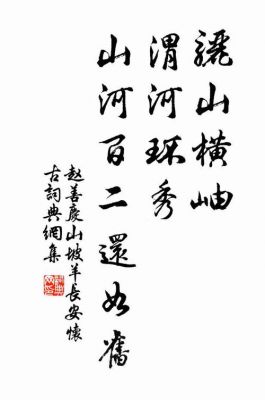 驪山橫岫
渭河環秀
山河百二還如舊
趙善慶山坡羊長安懷
古詞典網集